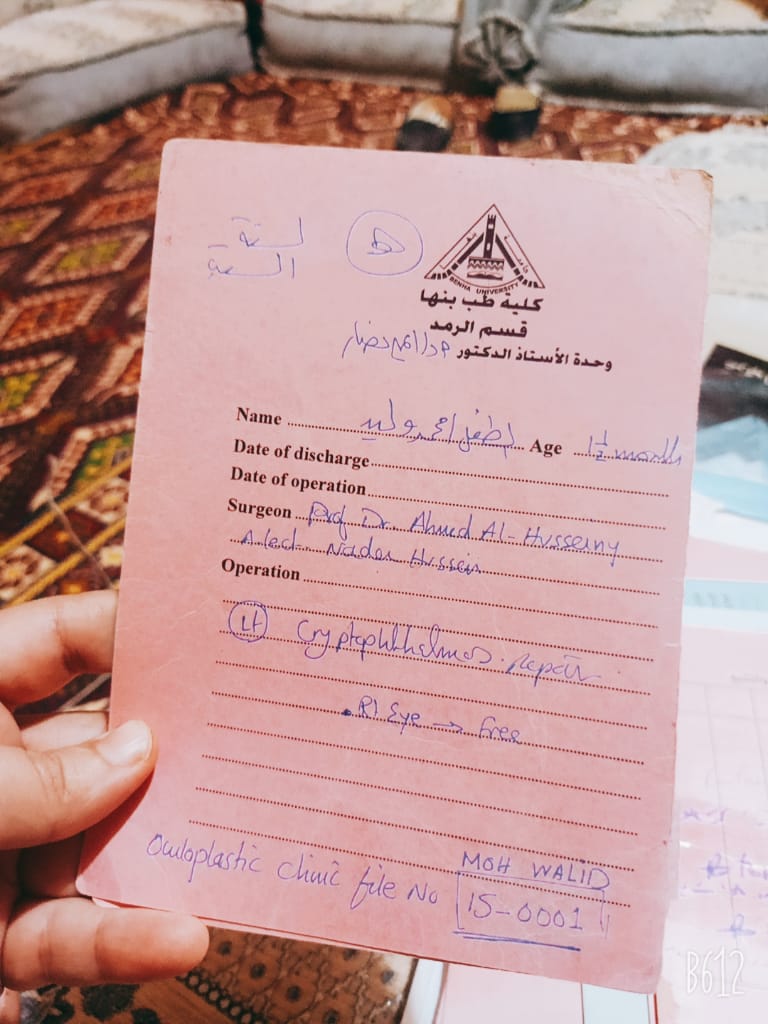 لستة
الستة
BENHA UNIVERSITY
كلية طب بنها
قسم الرمد
وحدة الأستاذ الدكتور
Name لطفل احمد وليد Age 1 1/2 month
Date of discharge
Date of operation
Surgeon Prof Dr. Ahmed Al-Husseiny
A.lect. Nader Hussein
Operation
Lt Cryptophthalmos repair
. Rt Eye → free
Oculoplastic clinic file No
MOH WALID
15-0001
B612